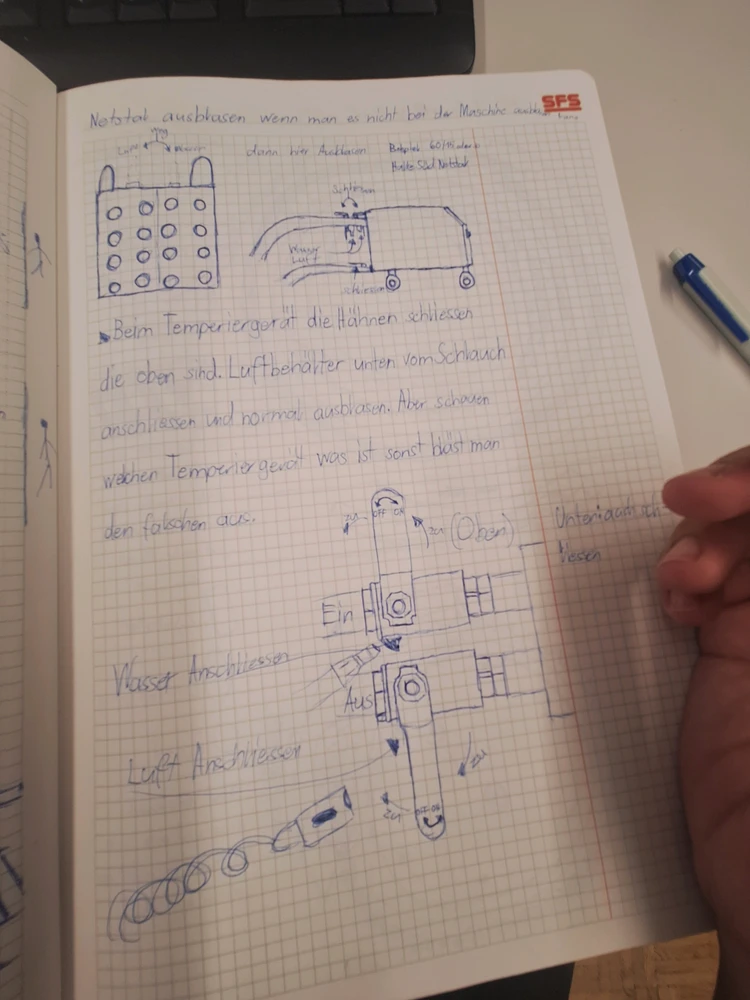 SFS
Netstal ausblasen wenn man es nicht bei der Maschine ausblasen kann
weg
Luft Wasser
dann hier Ausblasen
Beispiel 60/
Halle Süd Netstal
Schliessen
Wasser
Luft
schliessen
Beim Temperiergerät die Hähnen schliessen
die oben sind. Luftbehälter unten vom Schlauch
anschliessen und normal ausblasen. Aber schauen
welchen Temperiergerät was ist sonst bläst man
den falschen aus.
zu OFF ON
zu (Oben)
Unten auch sch-
liessen
Ein
Wasser Anschliessen
Aus
Luft Anschliessen
zu
zu OFF ON